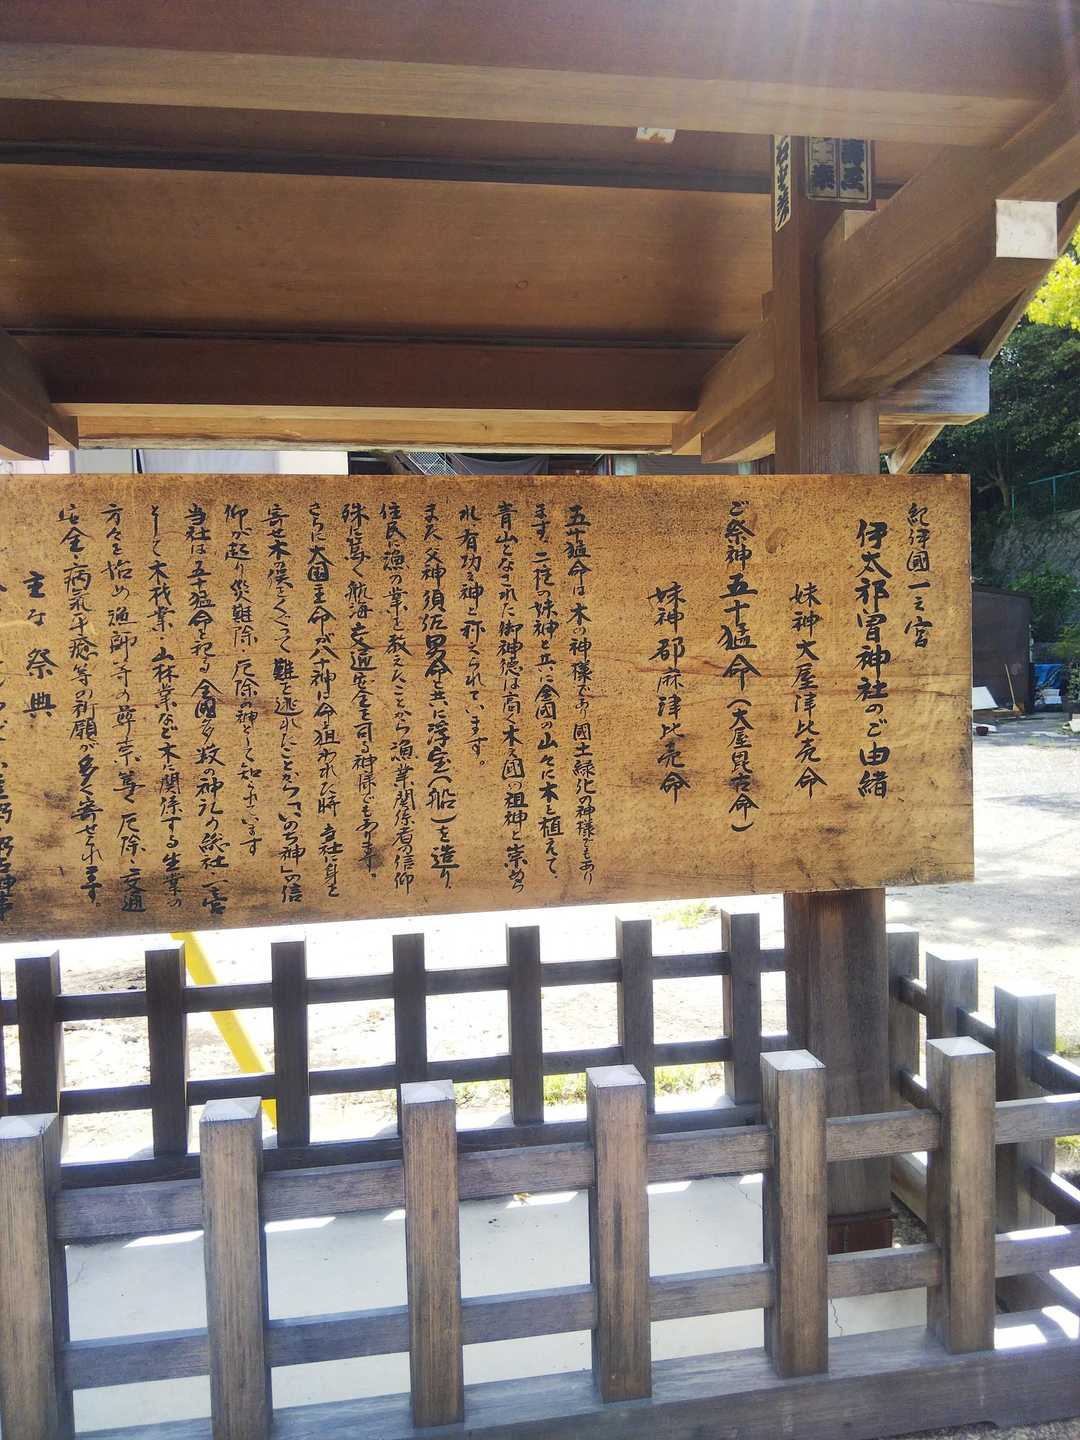 紀伊國一之宮
伊太祁曽神社のご由緒
妹神大屋津比売命
ご祭神 五十猛命(大屋毘古命)
妹神 都麻津比売命
五十猛命は木の神様であり國土緑化の神様でもあり
ます。二柱の妹神と共に全國の山々に木を植えて、
青山となされた御神徳は高く木の国の祖神と崇めら
れ有功の神と称えられています。
また父神須佐男命と共に浮宝(船)を造り、
住民に漁の業を教えたことから漁業関係者の信仰
殊に篤く航海交通安全を司る神様でもあります。
さらに大国主命が八十神に命を狙われた時 当社に身を
寄せ木の俣をくぐって難を逃れたことから「いのち神」の信
仰が起り災難除・厄除の神として知られています
当社は五十猛命を祀る全國多数の神社の総社 一宮
として木材業・山林業など木に関係する生業の
方々を始め漁師等の尊崇篤く厄除・交通
安全・病気平癒等の祈願が多く寄せられます。
主な祭典